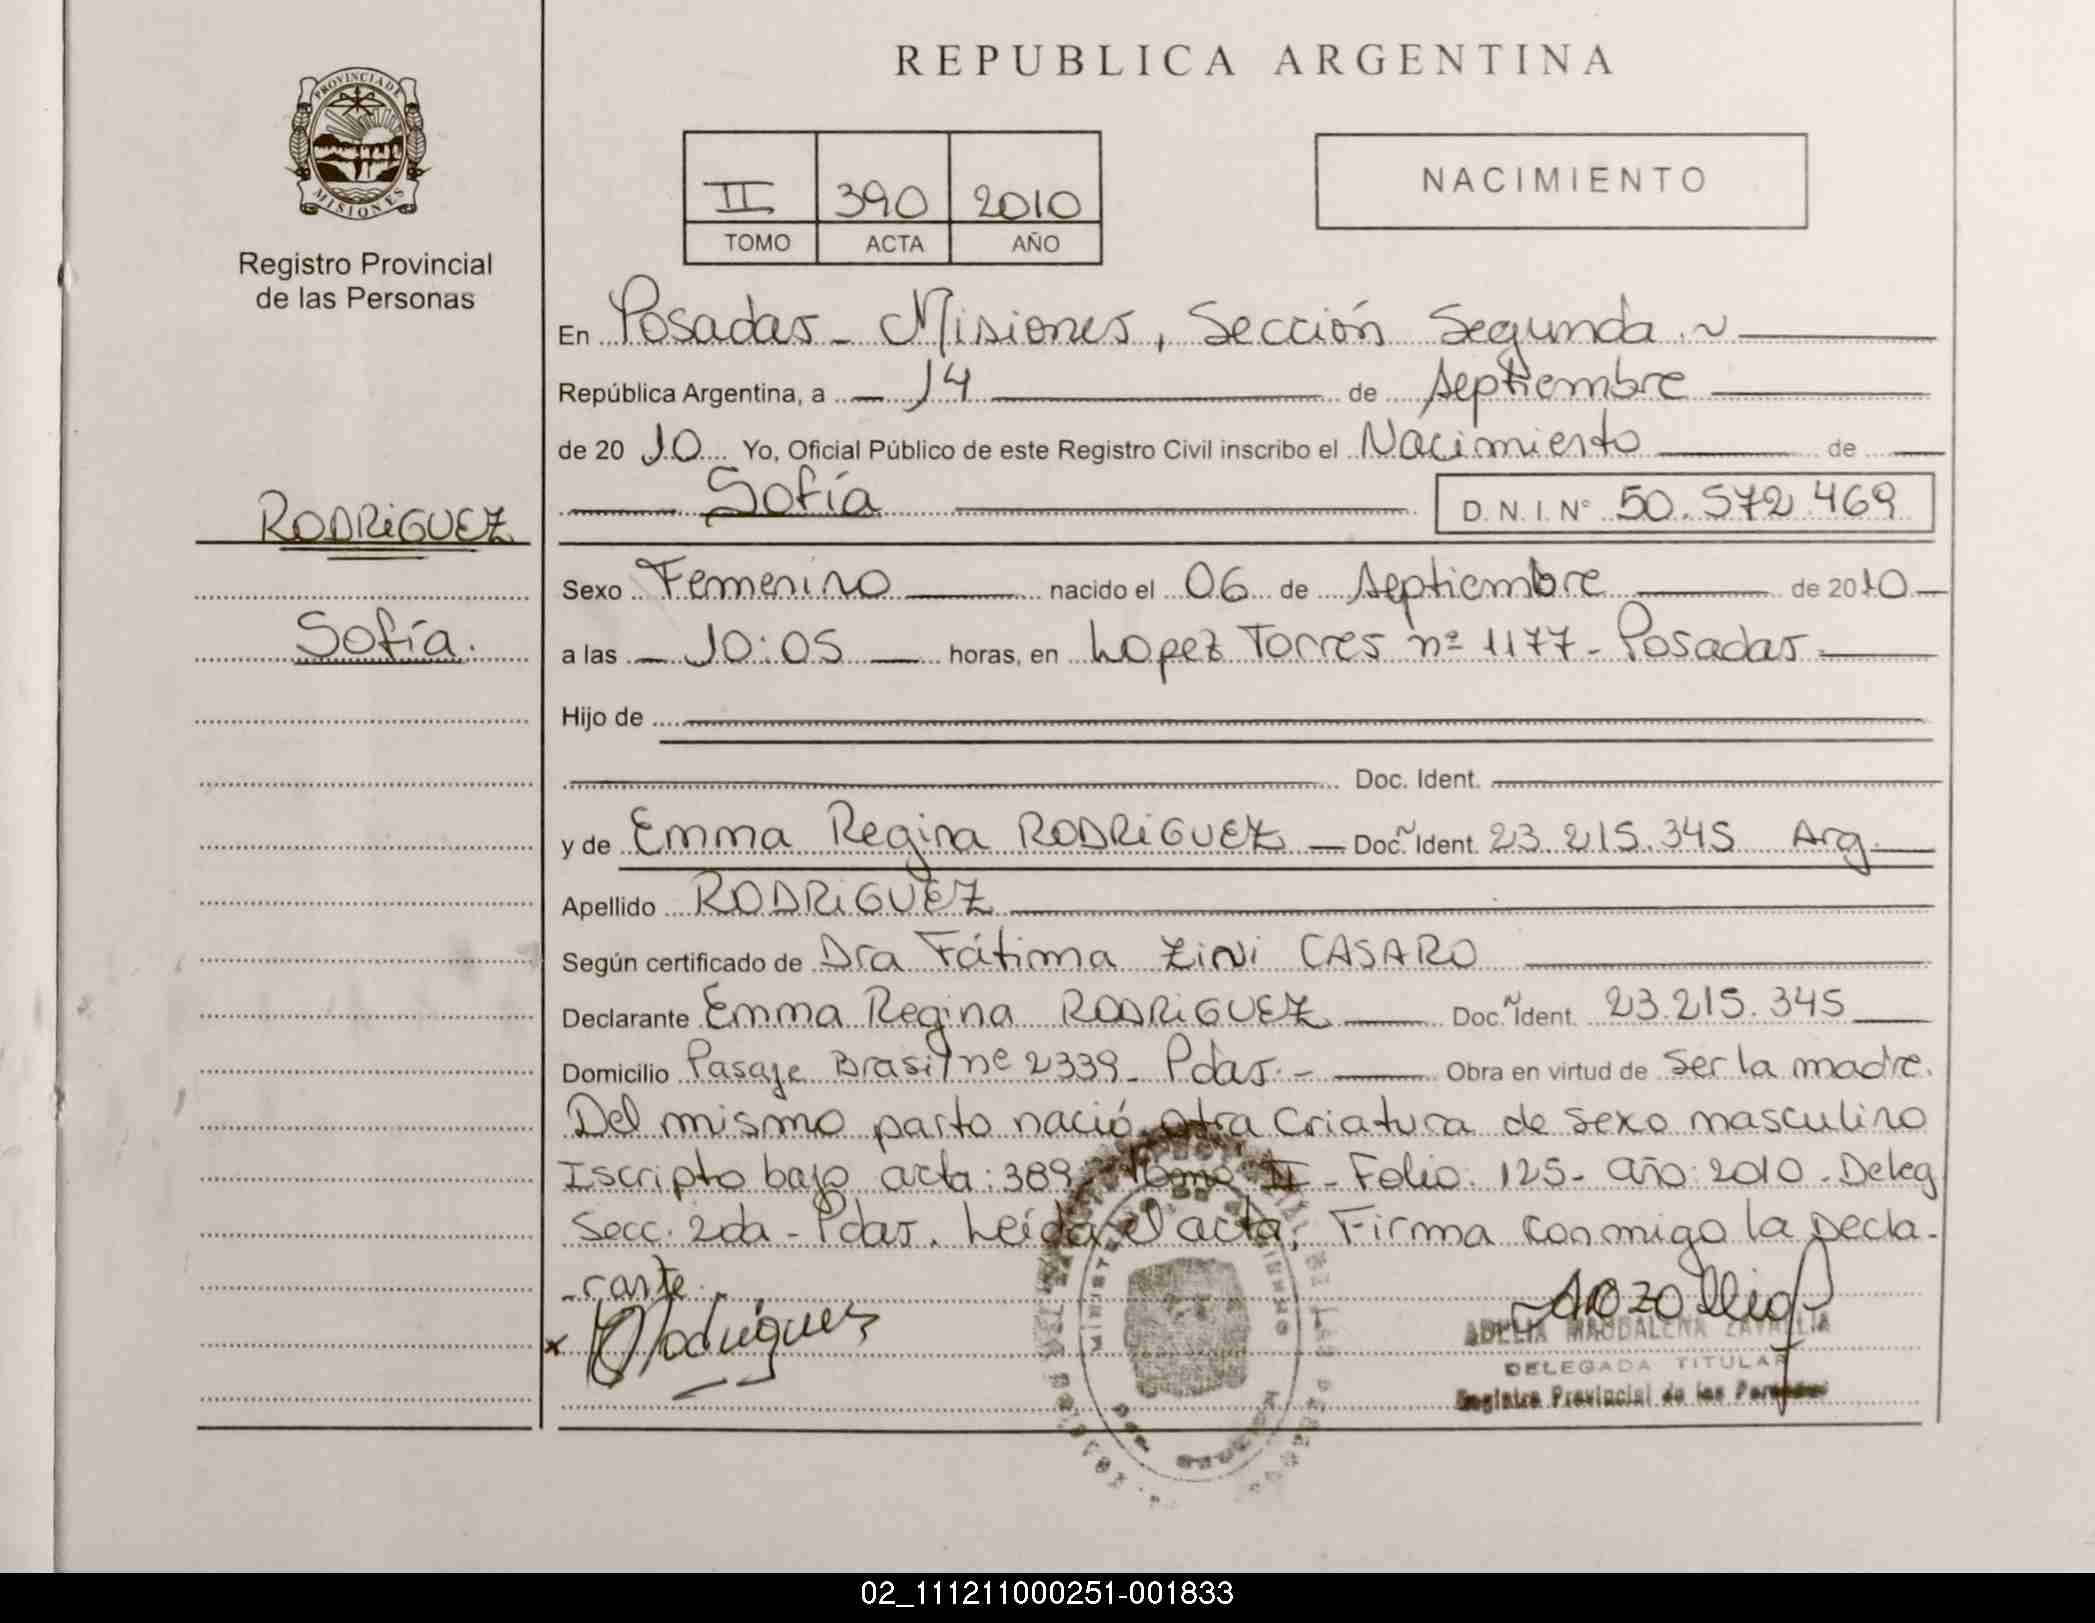 PROVINCIA DE
MISIONES
Registro Provincial
de las Personas
RODRIGUEZ
Sofía.
REPUBLICA ARGENTINA
II 390 2010
TOMO ACTA AÑO
NACIMIENTO
En Posadas - Misiones, Sección Segunda. ~
República Argentina, a — 14 de septiembre
de 20 10 Yo, Oficial Público de este Registro Civil inscribo el Nacimiento de
Sofía D.N.I. Nº 50.572.469
Sexo Femenino nacido el 06 de septiembre de 2010
a las — 10:05 — horas, en Lopez Torres nº 1177 - Posadas
Hijo de
Doc. Ident.
y de Emma Regina RODRIGUEZ — Doc. Ident. 23.215.345 Arg.
Apellido RODRIGUEZ
Según certificado de Dra Fátima Zini CASARO
Declarante Emma Regina RODRIGUEZ Doc. Ident. 23.215.345
Domicilio Pasaje Brasil nº 2339 - Pdas. - Obra en virtud de ser la madre.
Del mismo parto nació otra criatura de sexo masculino
Iscripto bajo acta: 389 Tomo II - Folio: 125 - año: 2010 - Deleg
Secc. 2da - Pdas. Leída el acta, Firma conmigo la Decla-
-rante.
x Rodriguez
ADELIA MAGDALENA ZAVALLIA
DELEGADA TITULAR
Registro Provincial de las Personas
02_111211000251-001833